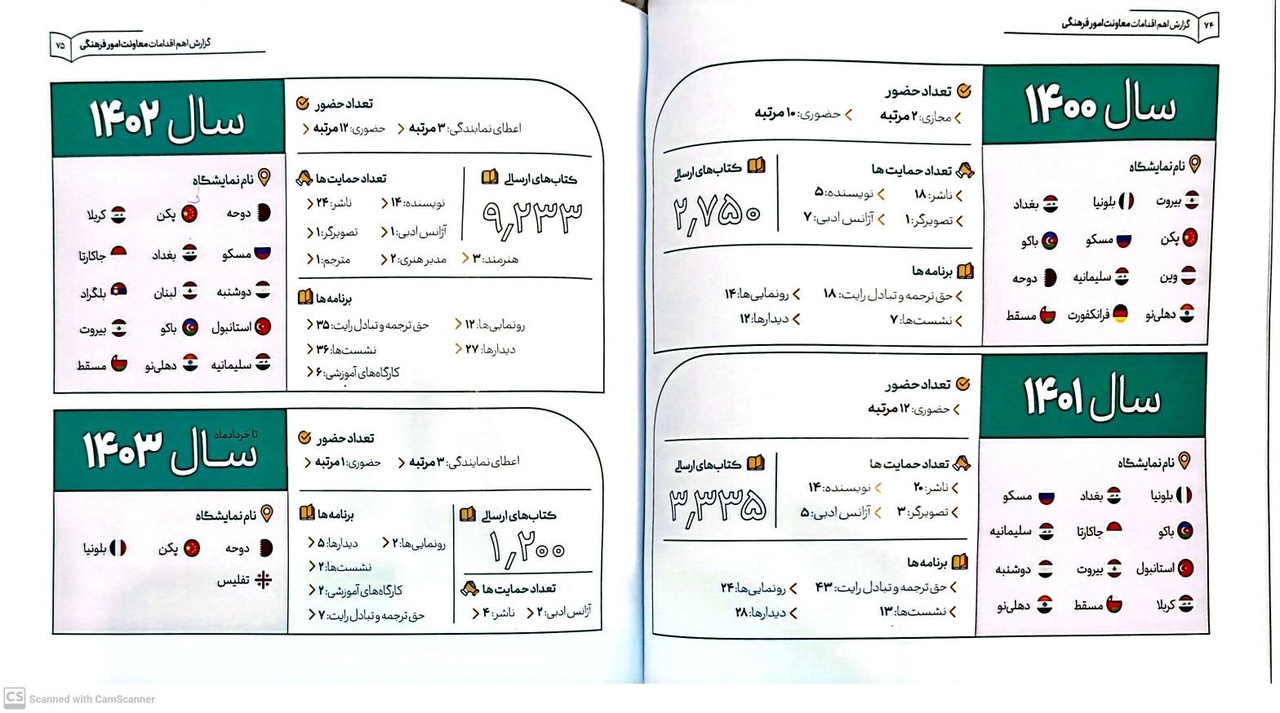 ۷۴ گزارش اهم اقدامات معاونت امور فرهنگی
سال ۱۴۰۰
نام نمایشگاه
بیروت بلونیا بغداد
پکن مسکو باکو
وین سلیمانیه دوحه
دهلی‌نو فرانکفورت مسقط
تعداد حضور
مجازی: ۲ مرتبه حضوری: ۱۰ مرتبه
تعداد حمایت ها
ناشر: ۱۸ نویسنده: ۵
تصویرگر: ۱ آژانس ادبی: ۷
کتاب‌های ارسالی
۲,۷۵۰
برنامه ها
حق ترجمه و تبادل رایت: ۱۸ رونمایی‌ها: ۱۴
نشست‌ها: ۷ دیدارها: ۱۲
سال ۱۴۰۱
نام نمایشگاه
بلونیا بغداد مسکو
باکو جاکارتا سلیمانیه
استانبول بیروت دوشنبه
کربلا مسقط دهلی‌نو
تعداد حضور
حضوری: ۱۲ مرتبه
تعداد حمایت ها
ناشر: ۲۰ نویسنده: ۱۴
تصویرگر: ۳ آژانس ادبی: ۵
کتاب‌های ارسالی
۳,۳۳۵
برنامه ها
حق ترجمه و تبادل رایت: ۴۳ رونمایی‌ها: ۲۴
نشست‌ها: ۱۳ دیدارها: ۲۸
گزارش اهم اقدامات معاونت امور فرهنگی ۷۵
سال ۱۴۰۲
نام نمایشگاه
دوحه پکن کربلا
مسکو بغداد جاکارتا
دوشنبه لبنان بلگراد
استانبول باکو بیروت
سلیمانیه دهلی‌نو مسقط
تعداد حضور
اعطای نمایندگی: ۳ مرتبه حضوری: ۱۲ مرتبه
کتاب‌های ارسالی
۹,۲۳۳
تعداد حمایت ها
نویسنده: ۱۴ ناشر: ۲۴
آژانس ادبی: ۱ تصویرگر: ۱
هنرمند: ۳ مدیر هنری: ۲ مترجم: ۱
برنامه ها
رونمایی‌ها: ۱۲ حق ترجمه و تبادل رایت: ۳۵
دیدارها: ۲۷ نشست‌ها: ۳۶
کارگاه‌های آموزشی: ۶
تا خردادماه
سال ۱۴۰۳
نام نمایشگاه
دوحه پکن بلونیا
تفلیس
تعداد حضور
اعطای نمایندگی: ۳ مرتبه حضوری: ۱ مرتبه
کتاب‌های ارسالی
۱,۲۰۰
تعداد حمایت ها
آژانس ادبی: ۲ ناشر: ۴
برنامه ها
رونمایی‌ها: ۲ دیدارها: ۵
نشست‌ها: ۲
کارگاه‌های آموزشی: ۲
حق ترجمه و تبادل رایت: ۷
CS Scanned with CamScanner